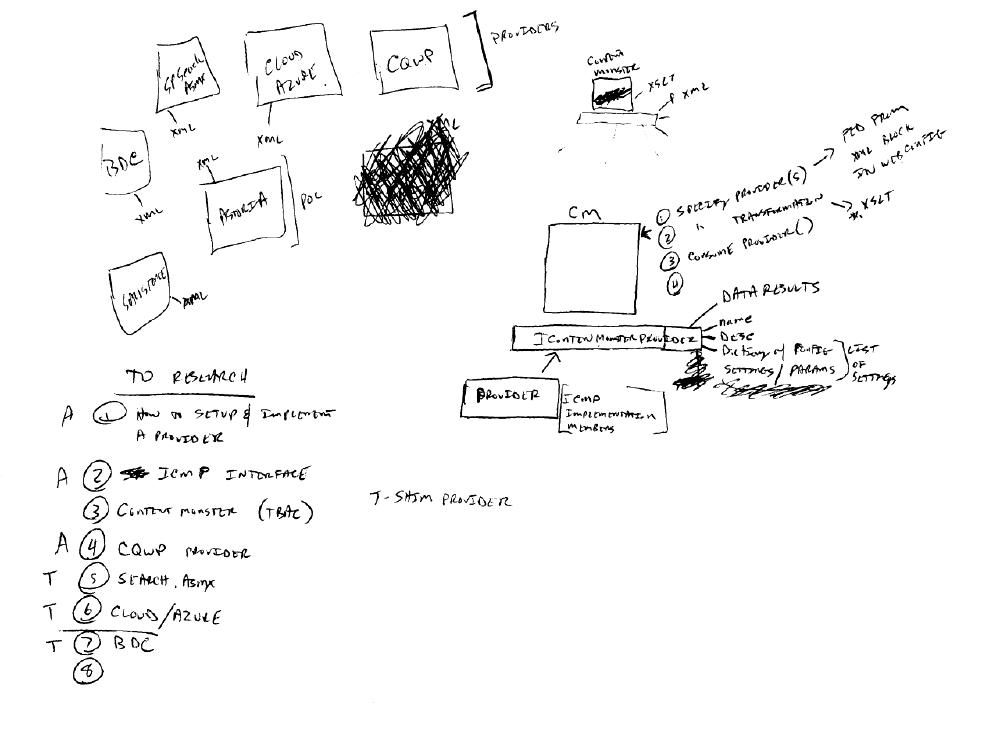 PROVIDERS
SPSearch
ASMX
CLOUD
AZURE
CQWP
XML
XML
BDC
XML
XML
ASTORIA
POC
XML
CONTENT
MONSTER
XSLT
XML
CM
① SPECIFY PROVIDER(S)
FED FROM
XML BLOCK
IN WEBCONFIG
② " TRANSFORMATION
*.XSLT
③ CONSUME PROVIDER()
④
DATA RESULTS
ICONTENMONSTERPROVIDER
name
DESC
Dictionary of CONFIG
SETTINGS/PARAMS
LIST
OF
SETTINGS
PROVIDER
ICMP
IMPLEMENTATION
MEMBERS
TO RESEARCH
A ① HOW TO SETUP & IMPLEMENT
A PROVIDER
A ② ICMP INTERFACE
③ CONTENT MONSTER (TBAC)
T-SHIM PROVIDER
A ④ CQWP PROVIDER
T ⑤ SEARCH.ASMX
T ⑥ CLOUD/AZURE
T ⑦ BDC
⑧